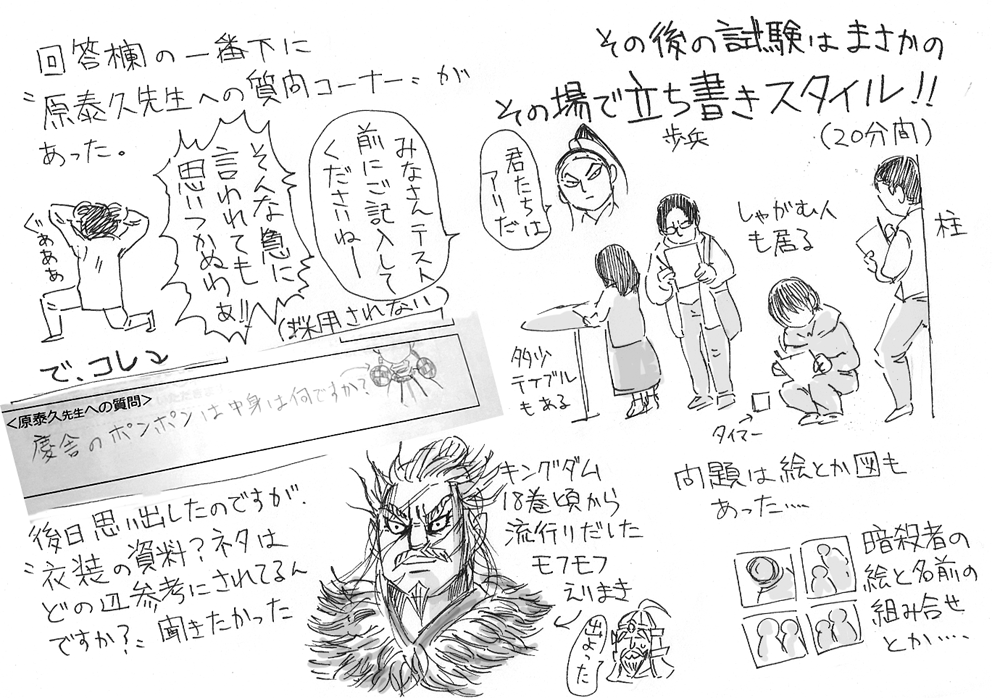 その後の試験はまさかの
その場で立ち書きスタイル!!
(20分間)
歩兵
君たちは
アリだ
しゃがむ人
も居る
柱
多少
テイブル
もある
タイマー
問題は絵とか図も
あった……
暗殺者の
絵と名前の
組み合せ
とか……
回答欄の一番下に
〝原泰久先生への質問コーナー〟が
あった。
みなさんテスト
前にご記入して
くださいねー
そんな急に
言われても
思いつかぬわぁ!!
ぐぁぁぁ
(採用されない)
で、コレ
<原泰久先生への質問>
慶舎のポンポンは中身は何ですか?
後日思い出したのですが、
〝衣装の資料?ネタは
どの辺参考にされてるん
ですか?〟聞きたかった
キングダム
18巻頃から
流行りだした
モフモフ
えりまき
出よった